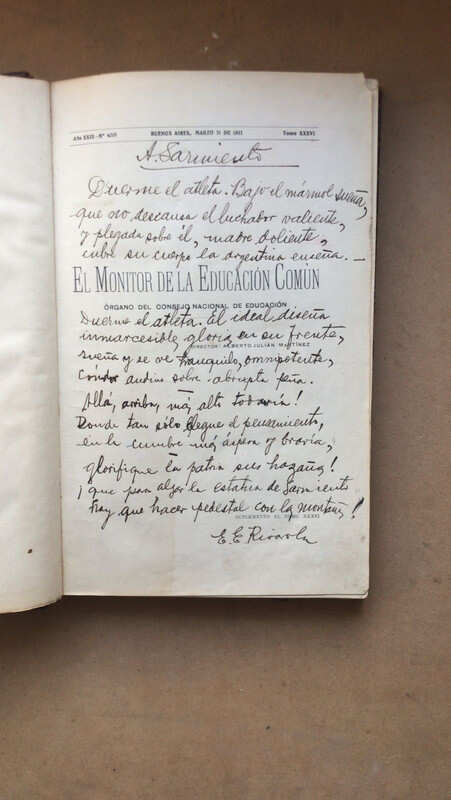 Año XXIX-Nº BUENOS AIRES, MARZO 31 DE 1911 Tomo XXXVI
A Sarmiento
Duerme el atleta. Bajo el mármol sueña,
que no descansa el luchador valiente,
y plegada sobre él, madre doliente,
cubre su cuerpo la argentina enseña. —
EL MONITOR DE LA EDUCACIÓN COMÚN
ÓRGANO DEL CONSEJO NACIONAL DE EDUCACIÓN
Duerme el atleta. El ideal diseña
inmarcesible gloria en su frente,
DIRECTOR: ALBERTO JULIÁN MARTÍNEZ
sueña y se ve tranquilo, omnipotente,
cóndor audías sobre abrupta peña.
Allá, arriba, más alto todavía!
Donde tan sólo llegue el pensamiento,
en la cumbre más áspera y bravía,
glorifique la patria sus hazañas!
¡que para alzar la estatua de Sarmiento
hay que hacer pedestal con la montaña!
SUPLEMENTO AL TOMO XXXVI
E. E. Rivarola